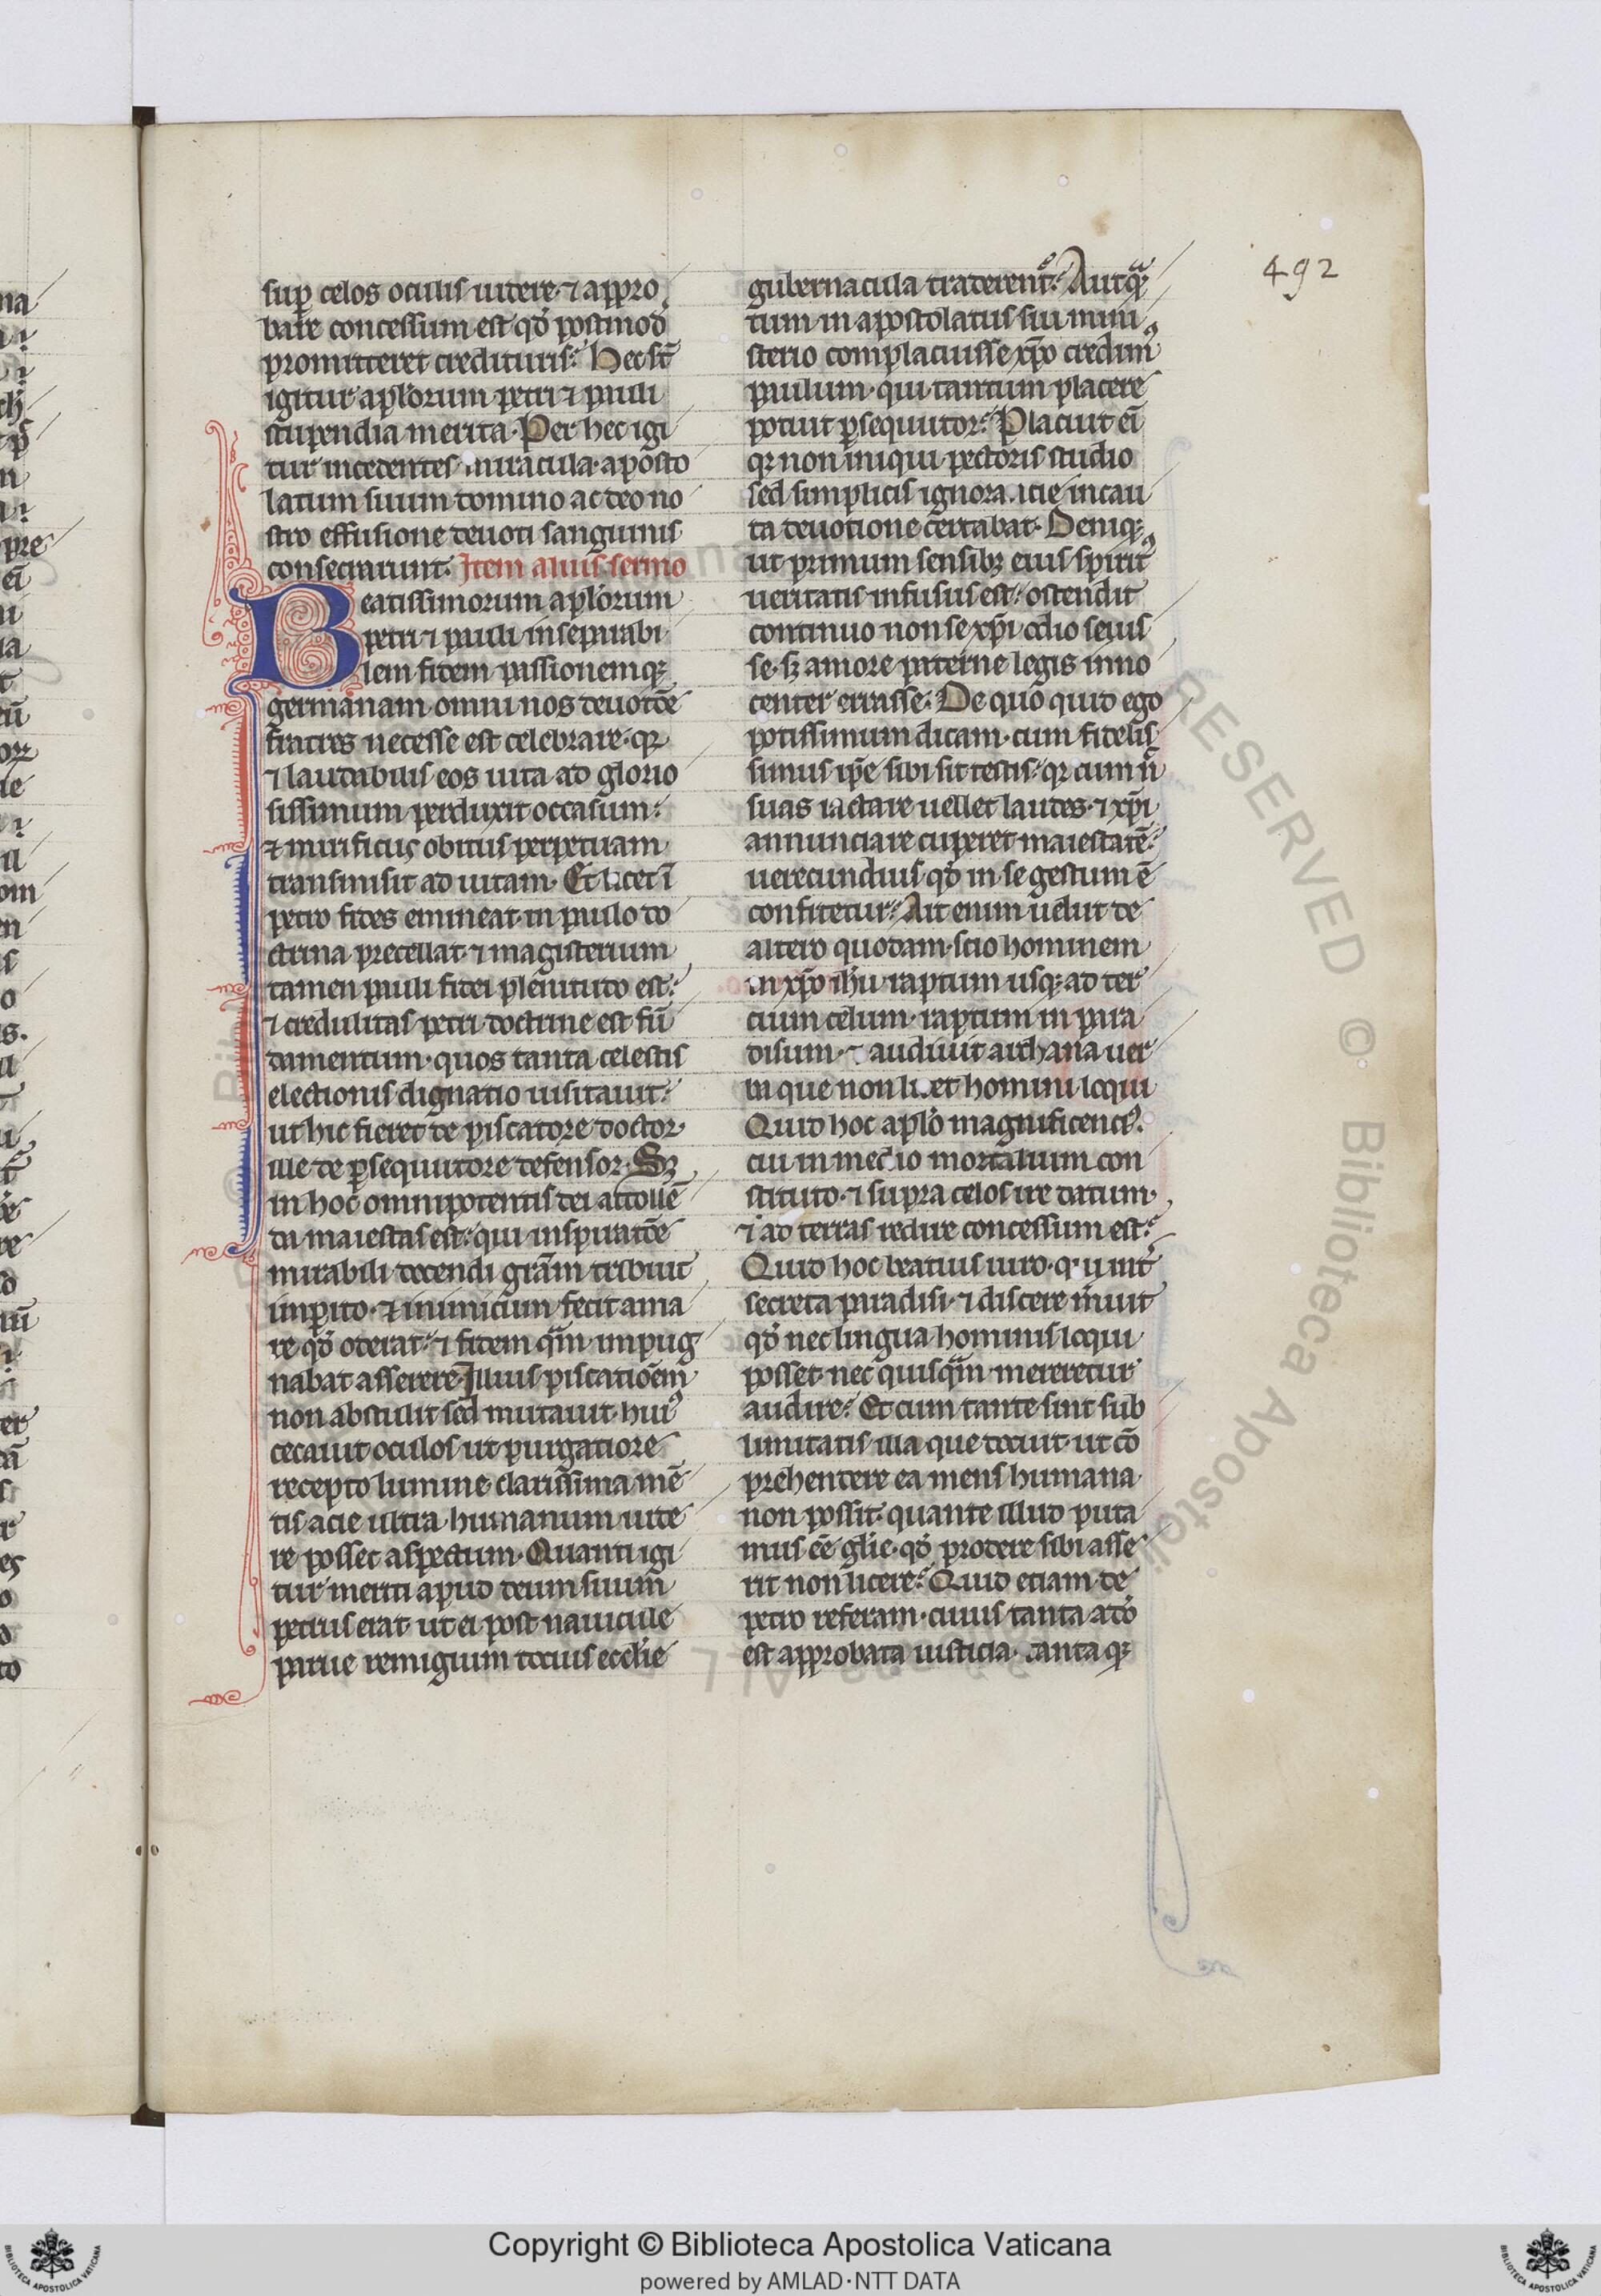 492
sup celos oculis uidere· ⁊ appro
bare concessum est qđ postmod
promitteret credituris: Hec st̄
igitur aplōrum petri ⁊ pauli
stupendia merita· Per hec igi
tur incedentes miracula· aposto
latum suum domino ac deo no
stro effusione deuoti sanguinis
consecrarunt. Item alius sermo
Beatissimorum aplōrum
petri ⁊ pauli inseparabi
lem fidem passionemqꝫ
germanam omni nos deuotōe
fratres necesse est celebrare· qꝛ
⁊ laudabilis eos uita ad glorio
sissimum perduxit occasum:
⁊ mirificus obitus perpetuam
transmisit ad uitam· Et licet ī
petro fides emineat· in paulo do
ctrina precellat· ⁊ magisterium
tamen pauli fidei plenitudo est:
⁊ credulitas petri doctrine est fū
damentum· quos tanta celestis
electionis dignatio uisitauit:
ut hic fieret de piscatore doctor·
ille de ꝑsequutore defensor· Sꝫ
in hoc omnipotentis dei attollē
da maiestas est: qui inspiratōe
mirabili docendi grām tribuit
imperito· ⁊ inimicum fecit ama
re qđ oderat: ⁊ fidem quā impug
nabat asserere· Illius piscatiōem
non abstulit sed mutauit· huiꝰ
cecauit oculos ut purgatiore
recepto lumine clarissima mē
tis acie ultra humanum uide
re posset aspectum· Quanti igi
tur meriti apud deum suum
petrus erat· ut ei post nauicule
parue remigium tocius ecclīe
gubernacula traderent᷑: Aut quā
tum in apostolatus sui mini
sterio complacuisse xp̄o credimꝰ
paulum· qui tantum placere
potuit ꝑsequutor: Placuit ei
qꝛ non iniqui pectoris studio
sed simplicis ignorancie incau
ta deuotione certabat· Deniqꝫ
ut primum sensibꝫ eius spiritꝰ
ueritatis infusus est: ostendit
continuo non se xp̄i odio seuis
se· sꝫ amore paterne legis inno
center errasse: De quo quid ego
potissimum dicam· cum fidelis
simus ip̄e sibi sit testis: qꝛ cum n̄
suas iactare uellet laudes· ⁊ xp̄i
annunciare cuperet maiestatē:
uerecundius qđ in se gestum ē
confitetur: Ait enim uelut de
altero quodam· scio hominem
in xp̄o ih̄u raptum usqꝫ ad ter
cium celum· raptum in para
disum· ⁊ audiuit archana uer
ba que non licet homini loqui
Quid hoc aplō magnificenciꝰ.
cui in medio mortalium con
stituto· ⁊ supra celos ire datum·
⁊ ad terras redire concessum est:
Quid hoc beatius uiro· qui int̄
secreta paradisi· ⁊ discere meruit
qđ nec lingua hominis loqui
posset· nec quisquā mereretur
audire: Et cum tante sint sub
limitatis illa que docuit· ut cō
prehendere ea mens humana
non possit· quante illud puta
mus eē gl̄ie· qđ prodere sibi asse
rit non licere: Quid etiam de
petro referam· cuius tanta a dō
est approbata iusticia· tanta qꝫ
Copyright © Biblioteca Apostolica Vaticana
powered by AMLAD·NTT DATA